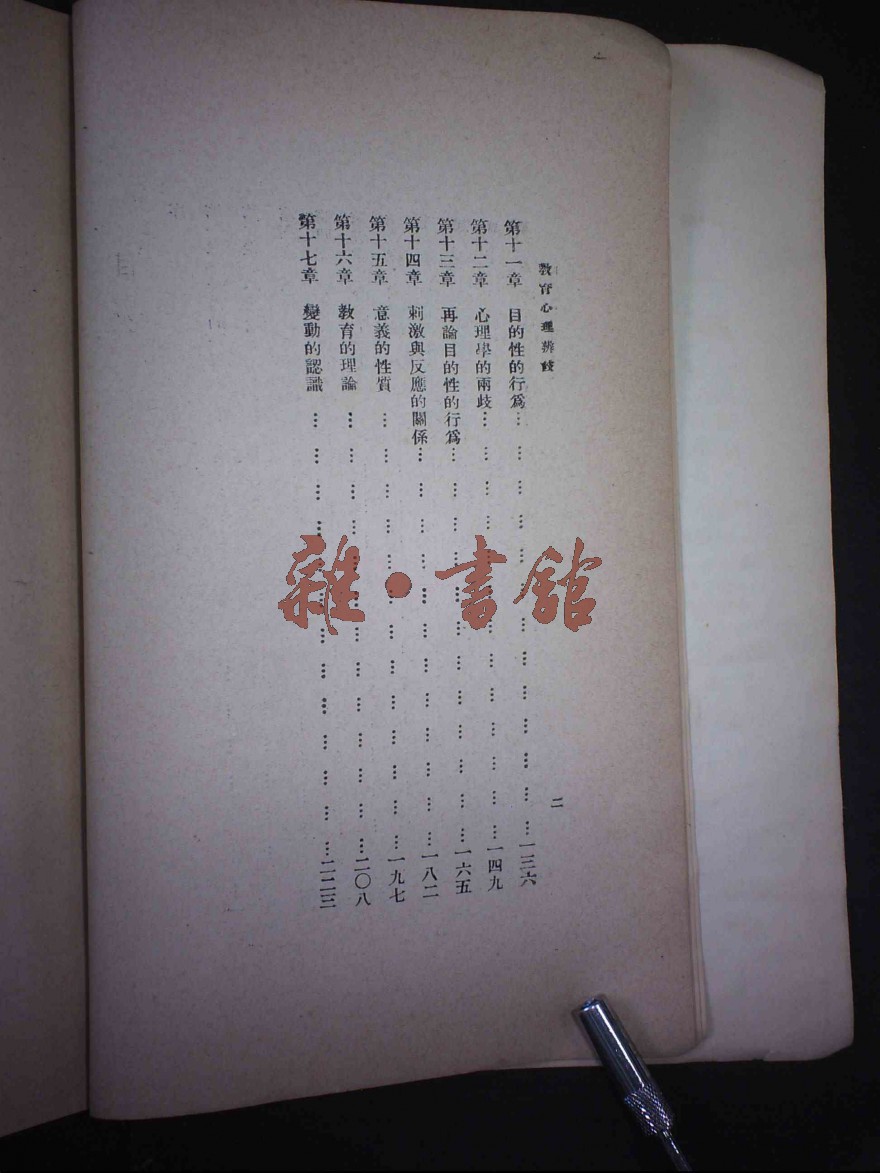 教育心理辨歧
二
第十一章 目的性的行爲… … … … … … … … … … … …一三六
第十二章 心理學的兩歧… … … … … … … … … … … … …一四九
第十三章 再論目的性的行爲… … … … … … … … … … … …一六五
第十四章 刺激與反應的關係… … … … … … … … … … … …一八二
第十五章 意義的性質… … … … … … … … … … … … …一九七
第十六章 教育的理論… … … … … … … … … … … … …二〇八
第十七章 變動的認識… … … … … … … … … … … … …二二三
雜·書館